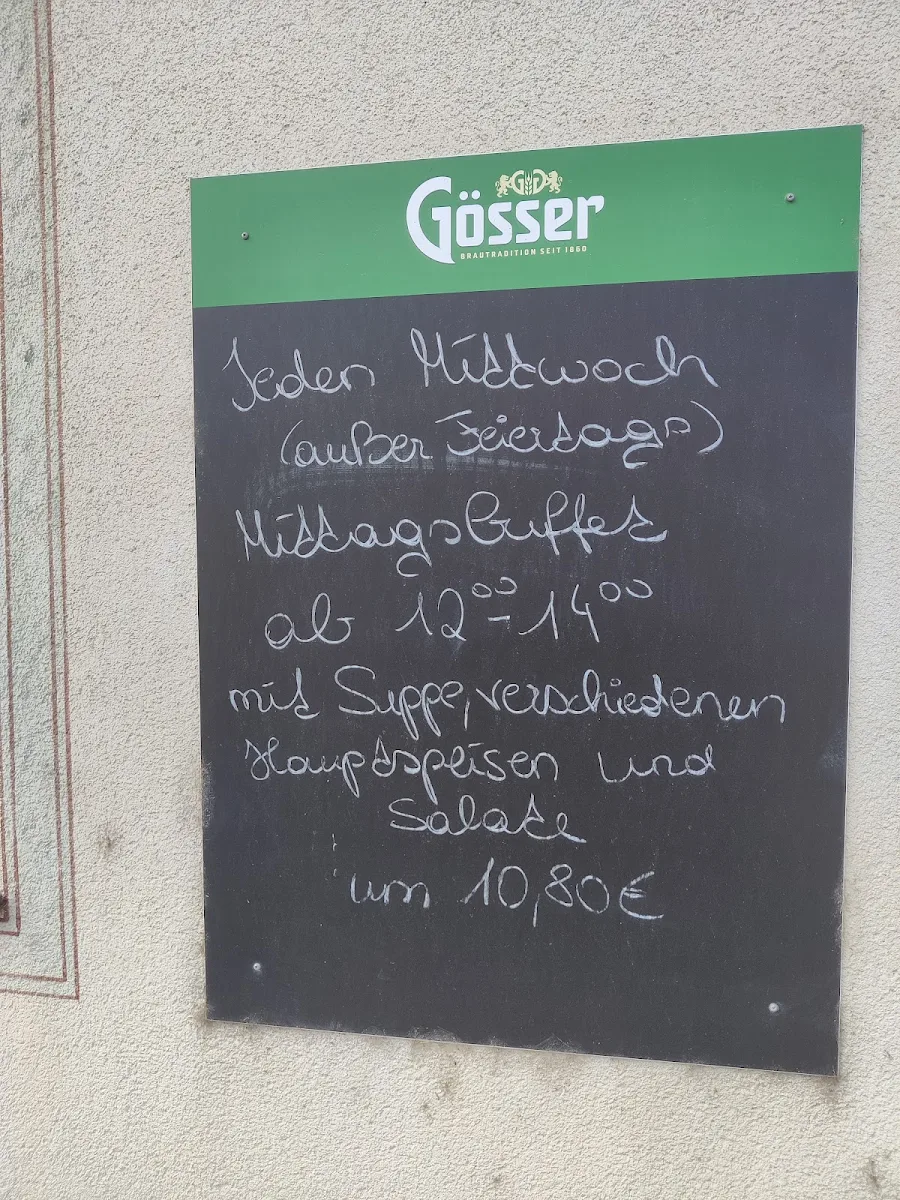 GG
Gösser
BRAUTRADITION SEIT 1860
Jeden Mittwoch
(außer Feiertags)
Mittagsbuffet
ab 12⁰⁰-14⁰⁰
mit Suppe, verschiedenen
Hauptspeisen und
Salate
um 10,80€